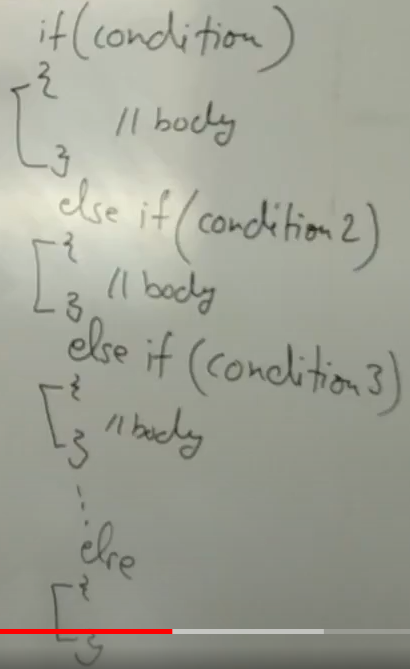 if(condition)
{
// body
}
else if(condition2)
{
// body
}
else if (condition3)
{
// body
}
⋮
else
{
}